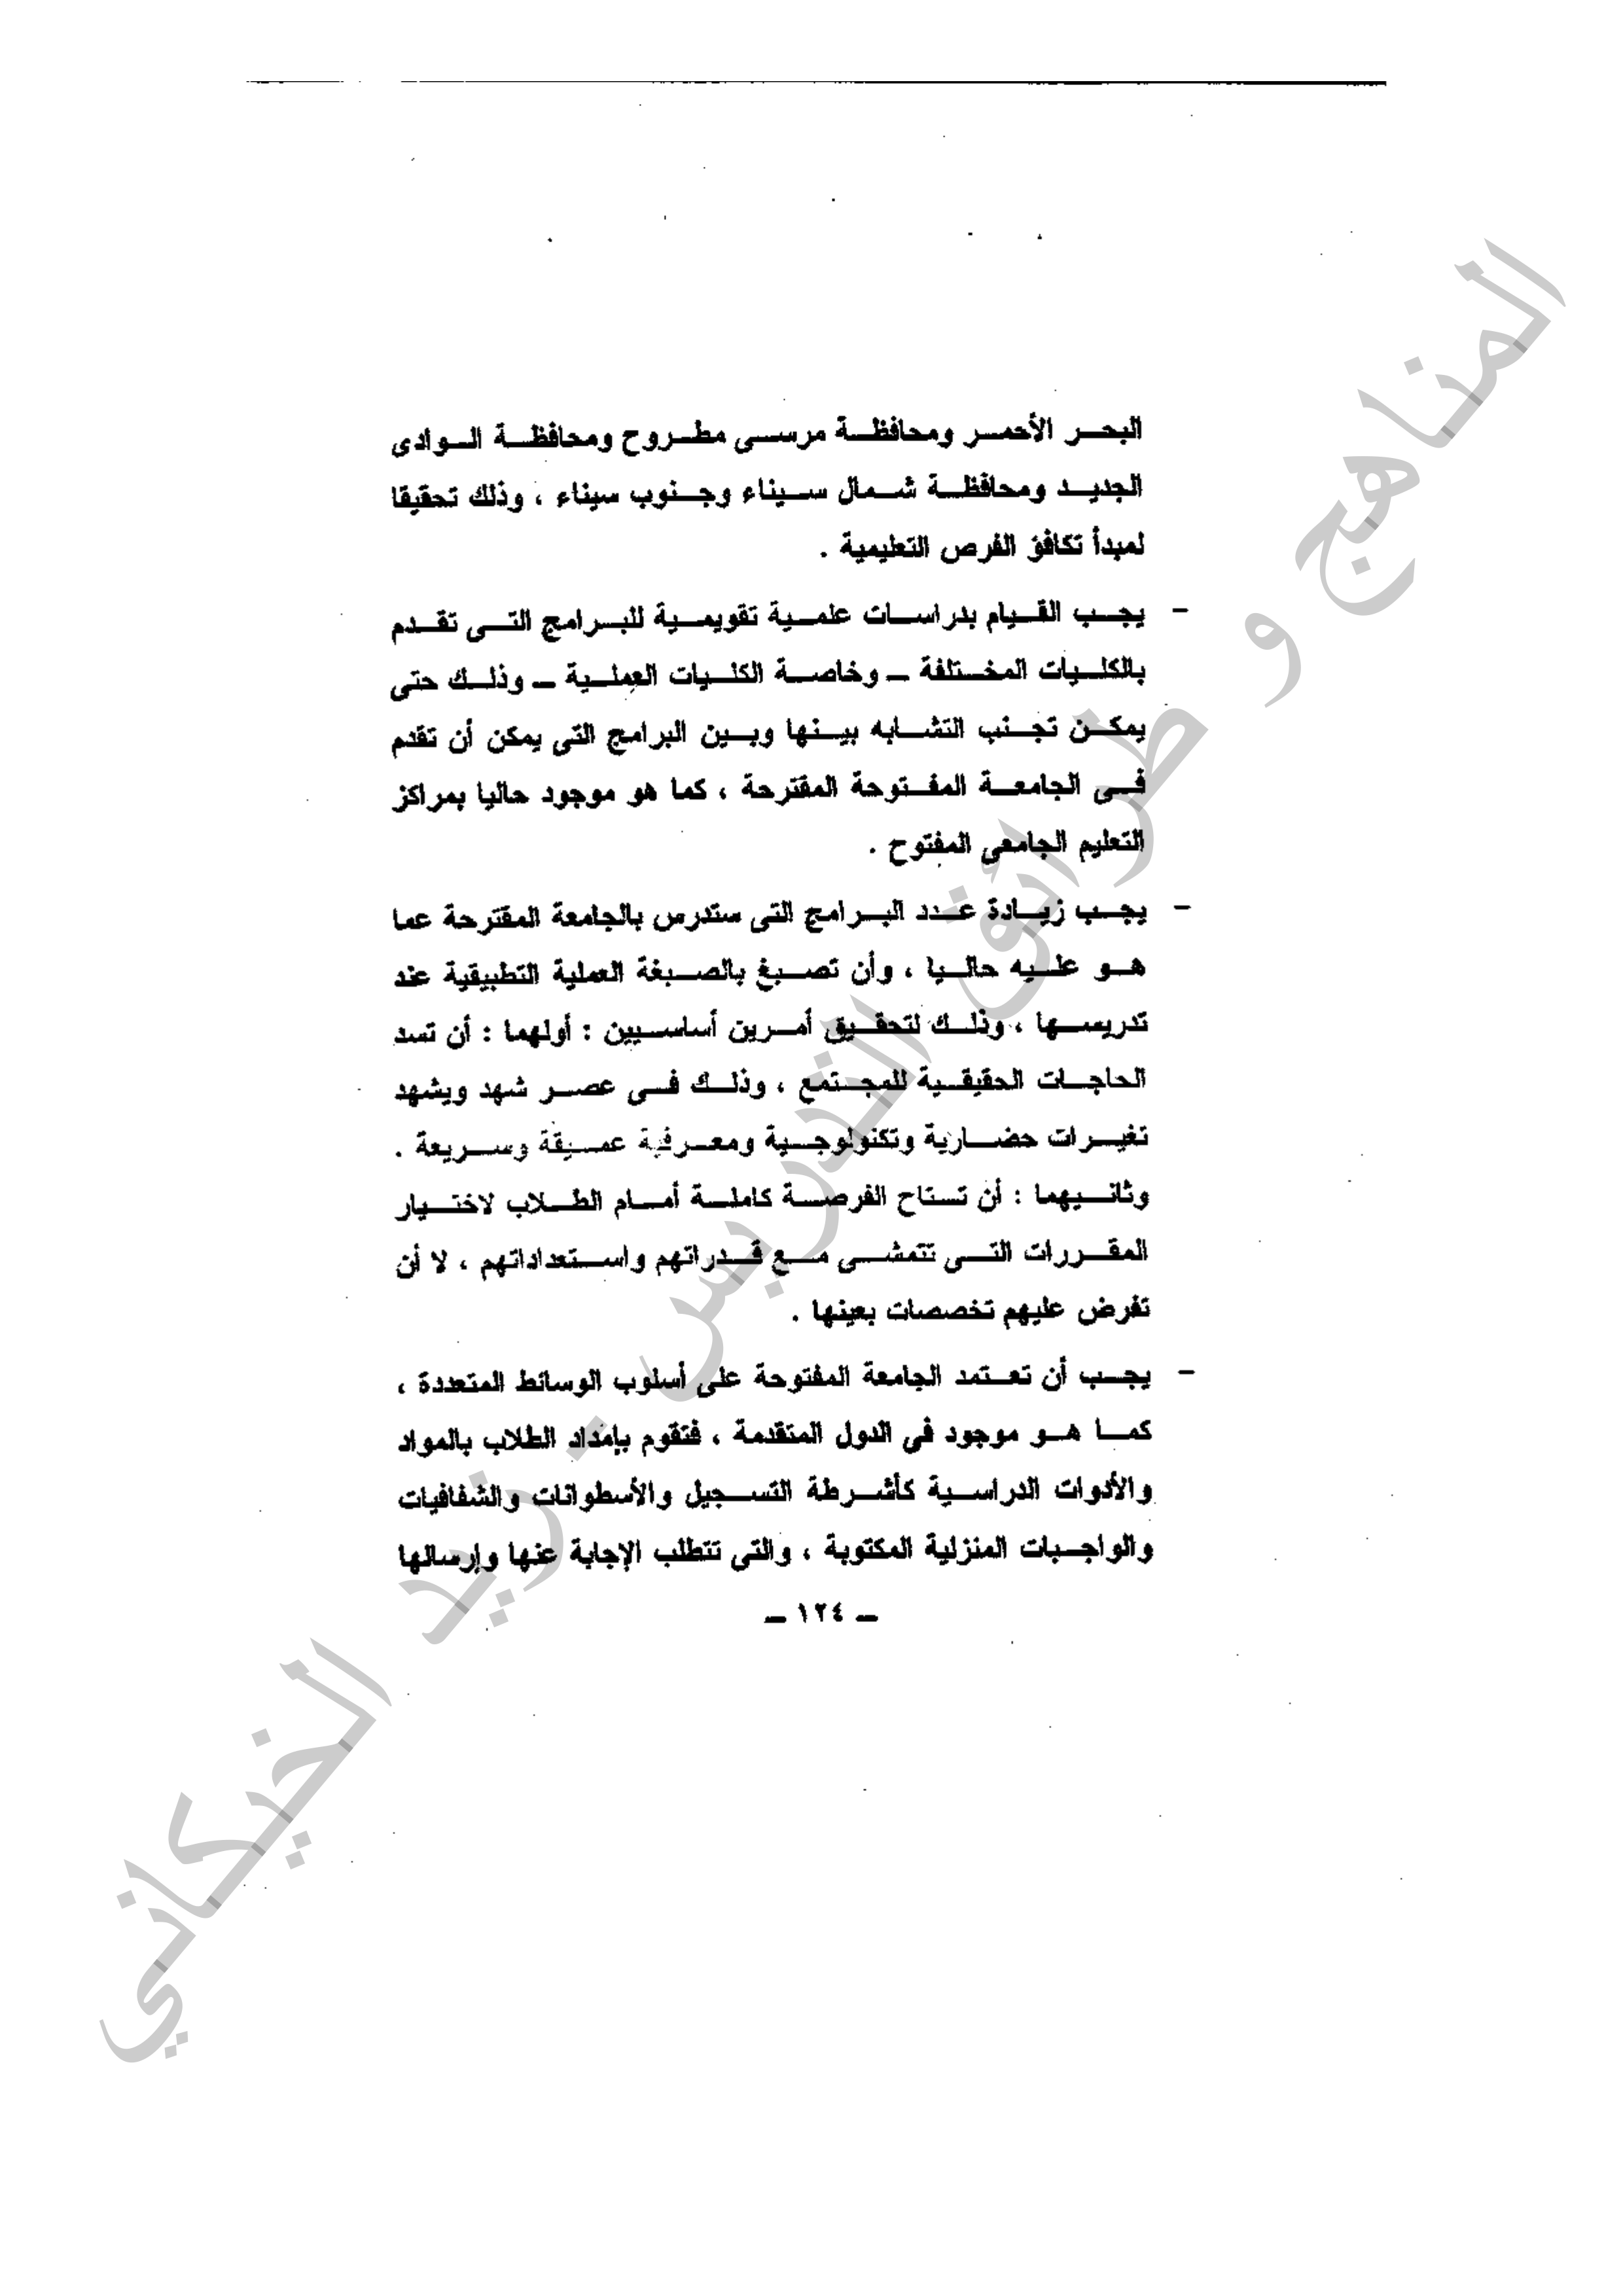 البحر الأحمر ومحافظة مرسى مطروح ومحافظة الوادى
الجديد ومحافظة شمال سيناء وجنوب سيناء ، وذلك تحقيقا
لمبدأ تكافؤ الفرص التعليمية .
- يجب القيام بدراسات علمية تقويمية للبرامج التى تقدم
بالكليات المختلفة ــ وخاصة الكليات العملية ــ وذلك حتى
يمكن تجنب التشابه بينها وبين البرامج التى يمكن أن تقدم
فى الجامعة المفتوحة المقترحة ، كما هو موجود حاليا بمراكز
التعليم الجامعى المفتوح .
- يجب زيادة عدد البرامج التى ستدرس بالجامعة المقترحة عما
هو عليه حاليا ، وأن تصبغ بالصبغة العملية التطبيقية عند
تدريسها ، وذلك لتحقيق أمرين أساسيين : أولهما : أن تسد
الحاجات الحقيقية للمجتمع ، وذلك فى عصر شهد ويشهد
تغيرات حضارية وتكنولوجية ومعرفية عميقة وسريعة .
وثانيهما : أن تستاح الفرصة كاملة أمام الطلاب لاختيار
المقررات التى تتمشى مع قدراتهم واستعداداتهم ، لا أن
تفرض عليهم تخصصات بعينها .
- يجب أن تعتمد الجامعة المفتوحة على أسلوب الوسائط المتعددة ،
كما هو موجود في الدول المتقدمة ، فتقوم بإمداد الطلاب بالمواد
والأدوات الدراسية كأشرطة التسجيل والأسطوانات والشفافيات
والواجبات المنزلية المكتوبة ، والتي تتطلب الإجابة عنها وإرسالها
ــ ١٢٤ ــ
المناهج و طرائق التدريس - زيد الخيكاني